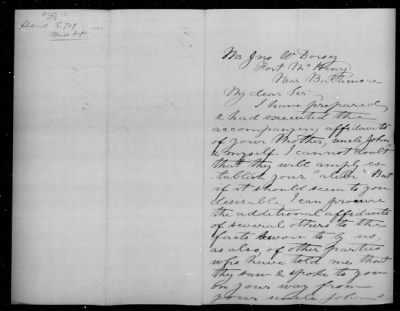 Mr Jno W Dorsey
Fort McHenry
Near Baltimore
My dear Sir
I have prepared
& had executed the
accompanying affidavits
of your Mother, uncle John
& myself. I cannot doubt
that they will amply es-
tablish your "alibi" But
if it should seem to you
desirable, I can procure
the additional affidavits
of several others to the
facts sworn to by us,
as also, of other parties
who have told me that
they saw & spoke to you
on your way from
your uncle John's